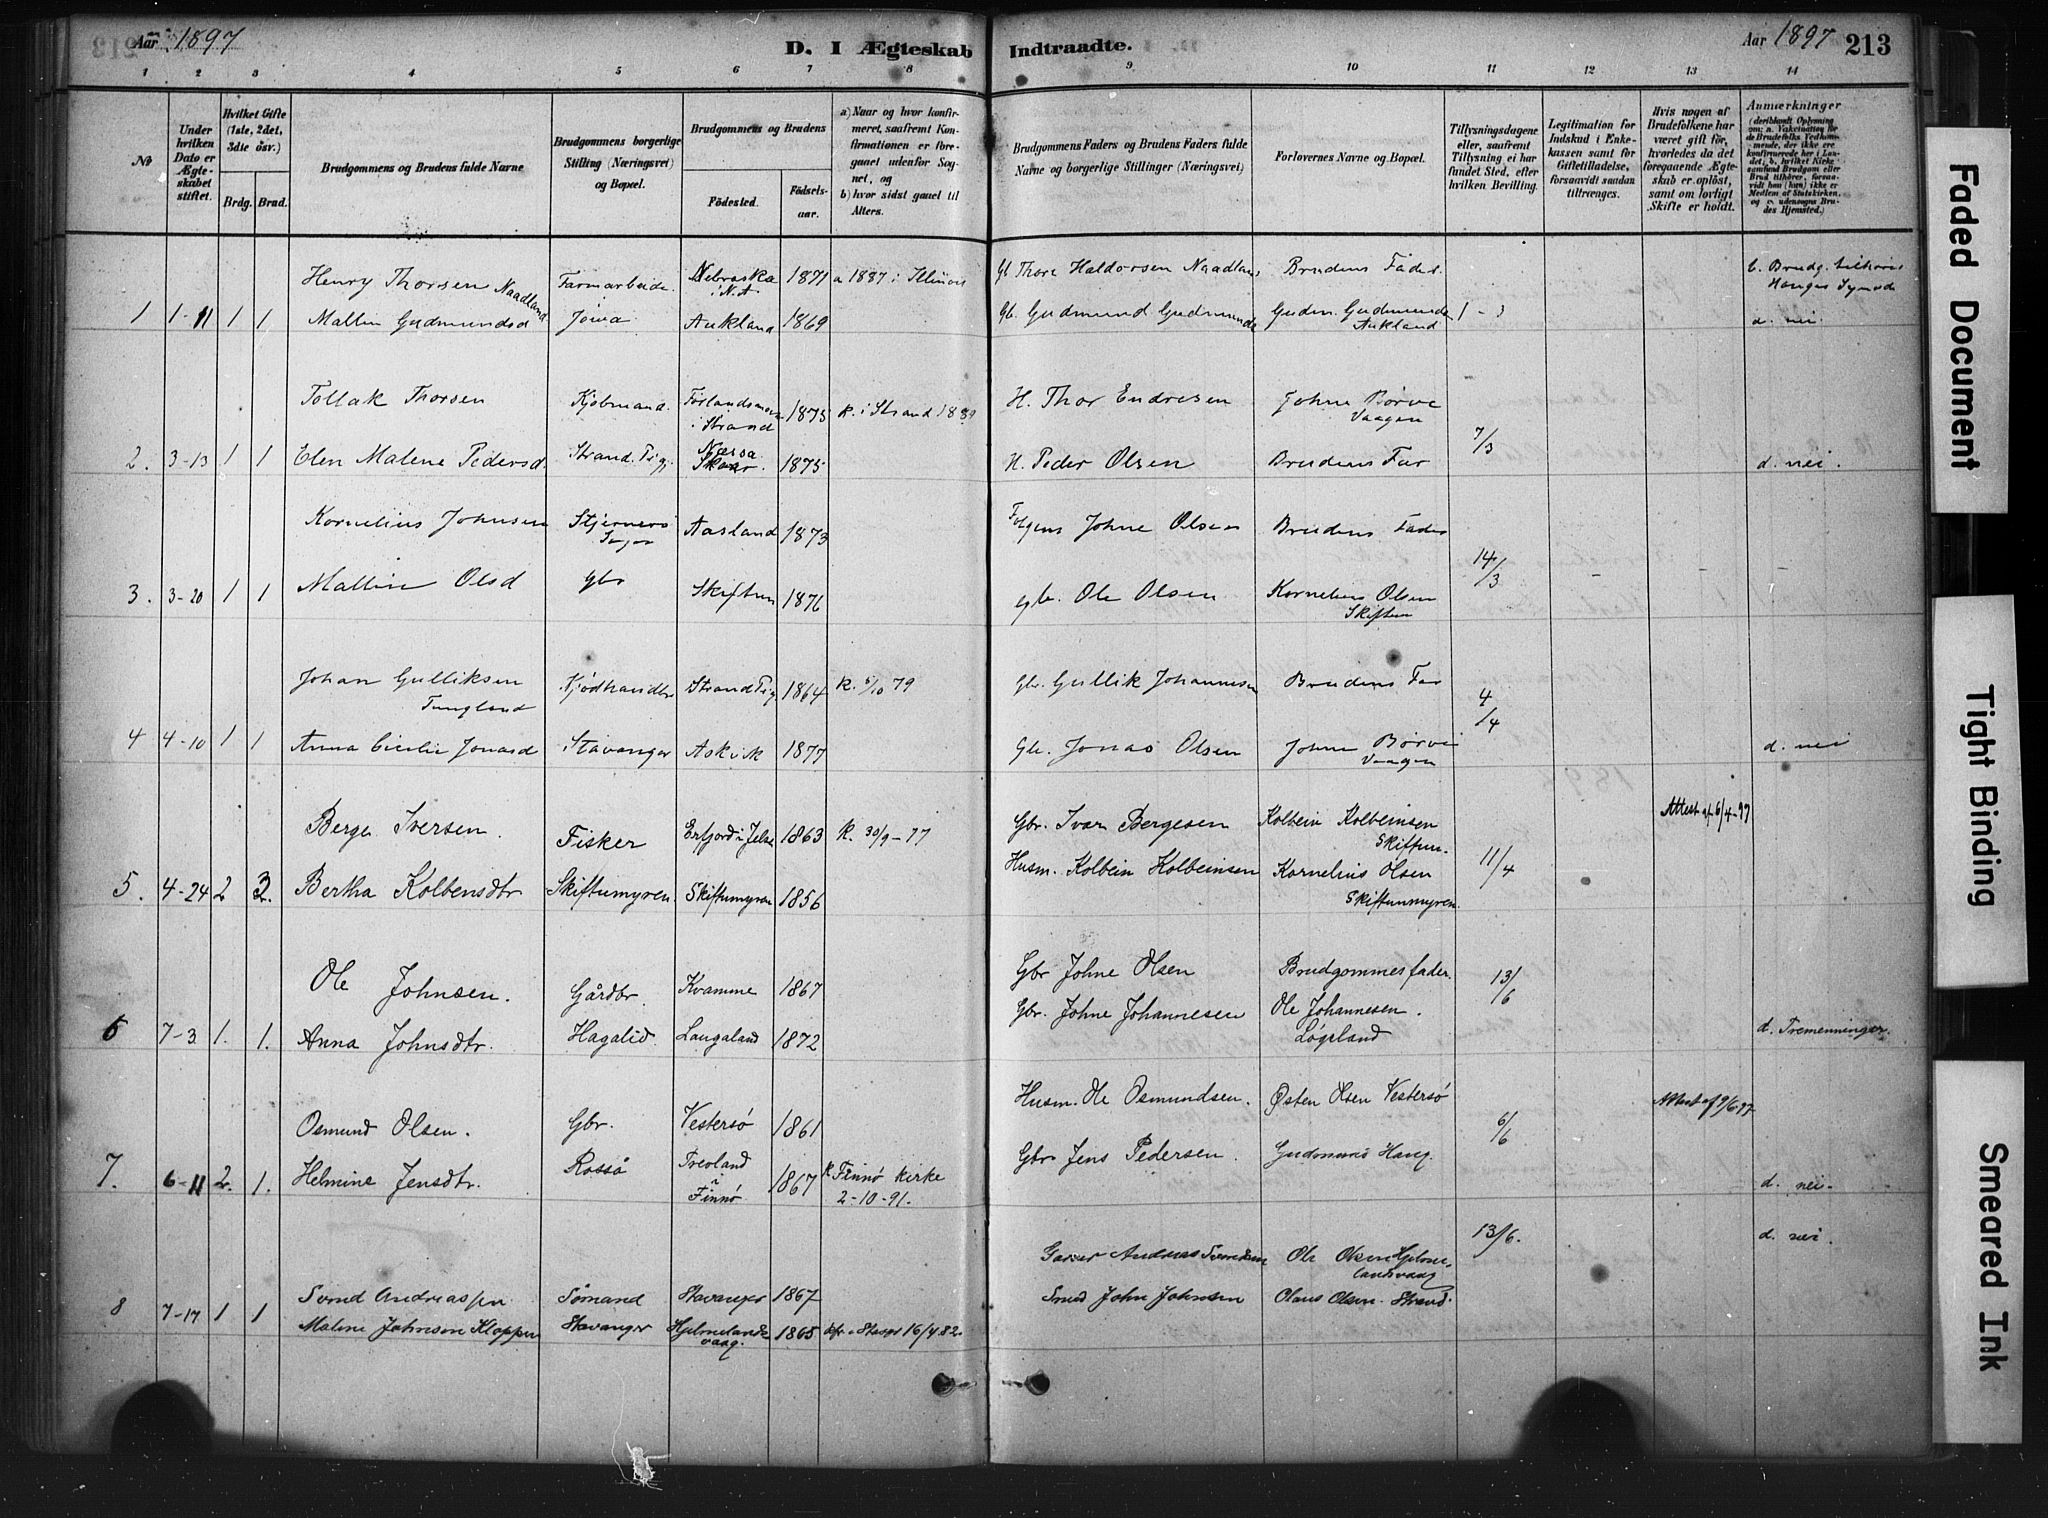 Aar 1897
D. I Ægteskab Indtraadte.
Aar 1897 213
1 2 3 4 5 6 7 8 9 10 11 12 13 14
No
Under hvilken Dato er Ægteskabet stiftet.
Hvilket Gifte (1ste, 2det, 3die osv.)
Brdg. Brud.
Brudgommens og Brudens fulde Navne
Brudgommens borgerlige Stilling (Næringsvei) og Bopæl.
Brudgommens og Brudens
Födested.
Födselsaar.
a) Naar og hvor konfirmeret, saafremt Konfirmationen er foregaaet udenfor Sognet, og
b) hvor sidst gaaet til Alters.
Brudgommens Faders og Brudens Faders fulde Navne og borgerlige Stillinger (Næringsvei)
Forlovernes Navne og Bopæl.
Tillysningsdagene eller, saafremt Tillysning ei har fundet Sted, efter hvilken Bevilling.
Legitimation for Indskud i Enkekassen samt for Giftetilladelse, forsaavidt saadan tiltrænges.
Hvis nogen af Brudefolkene har været gift för, hvorledes da det foregaaende Ægteskab er oplöst, samt om lovligt Skifte er holdt.
Anmærkninger (deriblandt Oplysning om: a. Vakcination for de Brudefolks Vedkommende, der ikke ere konfirmerede her i Landet; b. hvilket Kirkesamfund Brudgom eller Brud tilhörer, forsaavidt han (hun) ikke er Medlem af Statskirken, og c. udensogns Brudes Hjemsted.)
Henry Thorsen Naadland Farmarbeide. Nebraska i N.A. 1871 a 1887 i Illinois Gb Thore Haldorsen Naadland Brudens Fader b. Brudg. tilhører Hauges Synode
1 1-11 1 1 Mallin Gudmundsd Jowa Aukland 1869 Gb. Gudmund Gudmunds Gudm. Gudmunds Aukland d. nei
Tollak Thorsen Kjøbmand. i Strand 1875 k. i Strand 1889 H. Thor Endresen Johne Børve Vaagen
7/3
2. 3-13 1 1 Elen Malene Pedersd. Strand. Skaar. 1875 H. Peder Olsen Brudens Far d. nei.
Kornelius Johnsen Stjernerö Aasland 1873 Johne Olsen Brudens Fader
14/3
3. 3-20 1 1 Mallin Olsd gbr Skiftun 1876 gb. Ole Olsen Kornelius Olsen Skiftun
Johan Gulliksen Tungland Kjödhandler Strand 1864 k. 5/10 79 Gbr. Gullik Johannesen Brudens Far
4/4
4 4-10 1 1 Anna Cicilie Jonasd Stavanger Askvik 1877 Gb. Jonas Olsen Johne Børve Vaagen d. nei
Berge Iversen. Fisker Erfjord i Jelse 1863 k. 30/9-77 Gbr. Ivar Bergesen Kolbein Kolbeinsen Skiftun. Attest af 6/4-97
11/4
5. 4-24 2 2. Bertha Kolbensdtr Skiftumyren. Skiftumyren 1856 Husm. Kolbein Kolbeinsen Kornelius Olsen Skiftunmyren
Ole Johnsen. Gårdbr. Kvamme 1867 Gbr Johne Olsen Brudgommes fader. 13/6
6 7-3 1. 1. Anna Johnsdtr. Hagalid. Laugaland 1872 Gbr. Johne Johannesen Ole Johannesen. Løgeland d. Tremenninger.
Osmund Olsen. Gbr. Vestersö 1861 Husm. Ole Osmundsen. Østen Olsen Vestersö Attest af 9/6 97
6/6
7. 6-11 2. 1. Helmine Jensdtr. Rossö Treoland i Finnø 1867 k Finnø kirke 2-10-91. Gbr Jens Pedersen. Gudmund Haug. d. nei.
13/6. d. nei.
8 7-17 1 1 Svend Andreassen Sömand Stavanger 1867 Andreas Svendsen Ole Olsen Hjelmelandsvaag
Malene Johnsen Kloppen Stavanger Hjelmelandsvaag. 1865 kfr. i Stavgr 16/4 82. Smed John Johnsen Olaus Olsen Strand
Faded Document
Tight Binding
Smeared Ink